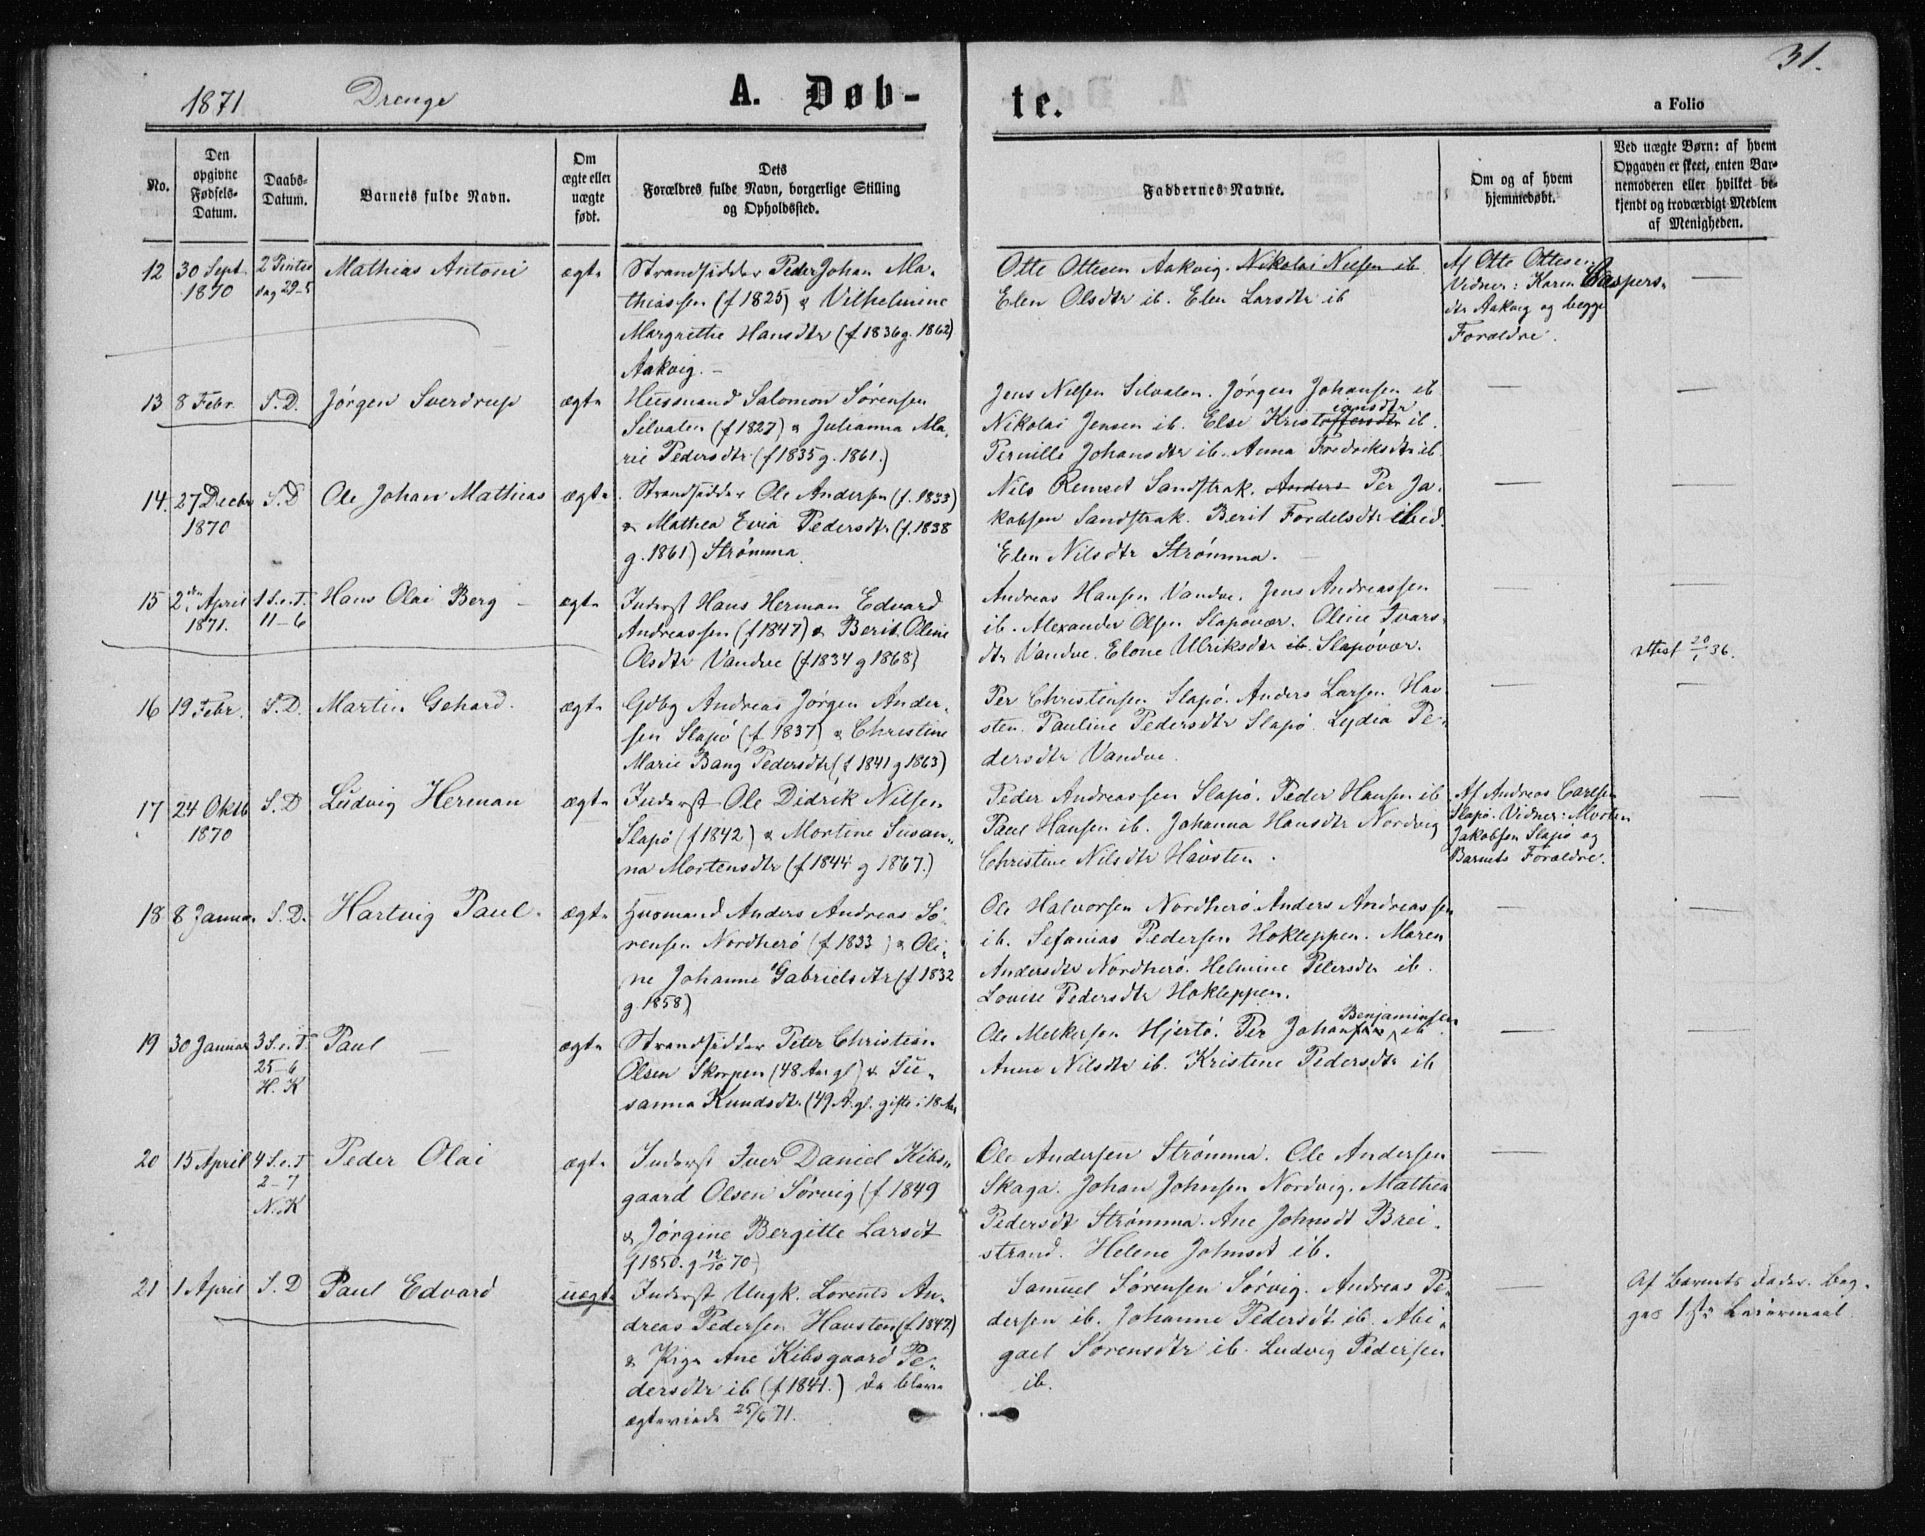 31.
1871 Drenge A. Døb- te. a Folio
No.
Den opgivne Fødsels-Datum.
Daabs-Datum.
Barnets fulde Navn.
Om ægte eller uægte født.
Dets Forældres fulde Navn, borgerlige Stilling og Opholdssted.
Faddernes Navne.
Om og af hvem hjemmedøbt.
Ved uægte Børn: af hvem Opgaven er skeet, enten Barnemoderen eller hvilket bekjendt og troværdigt Medlem af Menigheden.
12 30 Sept. 1870 2 Pintsedag 29-5 Mathias Antoni ægte
Strandsidder Peder Johan Ma-
thiassen (f 1825) & Vilhelmine
Margrethe Hansdtr (f 1836 g. 1862)
Aakvig. –
Otte Ottesen Aakvig. Nikolai Nelsen ib
Elen Olsdtr ib. Elen Larsdtr ib
Af Otte Ottesen
Vidner: Karen Caspers-
dtr Aakvig og begge
Forældre.
13 8 Febr. S.D. Jørgen Sverdrup ægte
Huusmand Salomon Sørensen
Silvalen (f 1827) & Julianna Ma-
rie Pedersdtr (f 1835 g. 1861.)
Jens Nelsen Silvalen. Jørgen Johansen ib
Nikolai Jensen ib. Else Kristoffersdtr iansdtr ib.
Pernille Johansdtr ib. Anna Fredriksdtr ib.
14. 27 Decbr 1870 S.D Ole Johan Mathias ægte
Strandsidder Ole Andersen (f. 1833)
& Mathea Evia Pedersdtr (f. 1838
g. 1861) Strømma.
Nils Remset Sandstrak. Anders Per Ja-
kobsen Sandstrak. Berit Fordelsdtr ibid.
Elen Nilsdtr Strømma.
15 2den April 1871. 1 S.e.T. 11–6 Hans Olai Berg – ægte
Inderst Hans Herman Edvard
Andreassen (f 1847) & Berit Oline
Olsdtr Vandve (f 1834 g 1868)
Andreas Hansen Vandve. Jens Andreassen
ib. Alexander Olsen Slapøvær. Oline Ivars-
dtr Vandve. Elone Ulriksdtr ib. Slapøvær.
Attest 20/1 36.
16 19 Febr. S.D. Martin Gehard. ægte
Gdbg Andreas Jørgen Ander-
sen Slapø (f 1837) & Christine
Marie Bang Pedersdtr (f 1841 g 1863)
Per Christensen Slapø. Anders Larsen Hav-
sten. Pauline Pedersdtr Slapø. Lydia Pe-
dersdtr Vandve.
17 24 Oktb 1870 S.D Ludvig Herman ægte
Inderst Ole Didrik Nilsen
Slapø (f 1842) & Mortine Susan-
na Mortensdtr (f 1844 g 1867.)
Peder Andreassen Slapø. Peder Hansen ib
Paul Hansen ib. Johanna Hansdtr Nordvig
Christine Nilsdtr Havsten.
Af Andreas Carlsen
Slapø. Vidner: Morten
Jakobsen Slapø og
Barnets Forældre.
18 8 Januar S.D. Hartvig Paul. ægte
Huusmand Anders Andreas Sø-
rensen Nordherø (f 1833) & Oli-
ne Johanne Gabrielsdtr (f 1832
g. 1858)
Ole Halvorsen Nordherø. Anders Andreassen
ib. Sefanias Pedersen Hokleppen. Maren
Andersdtr Nordherø. Helmine Petersdtr ib.
Lovise Pedersdtr Hokleppen.
19 30 Januar 3 S.e.T 25–6 H.K Paul – ægte
Strandsidder Peter Christian
Olsen Skorpen (48 Aar gl) & Su-
sanna Knudsdtr (49 A. gl. gifte i 18 Aar
Ole Melkersen Hjertø. Per Johansen Benjaminsen ib
Anne Nilsdtr ib. Kristine Pedersdtr ib
20 15 April 4 S.e.T 2–7 N.K Peder Olai ægte
Inderst Iver Daniel Kibs-
gaard Olsen Sørvig (f 1849
& Jørgine Bergitte Larsdt
f 1850. g 12/10 70)
Ole Andersen Strømma. Ole Andersen
Skaga. Johan Johnsen Nordvig. Mathea
Pedersdt Strømma. Ane Johnsdt Brei-
strand. Helene Johnsdt ib.
21 1 April S.D Paul Edvard uægte
Inderst Ungk. Lorents An-
dreas Pedersen Havsten (f 1842)
& Pige Ane Kibsgaard Pe-
dersdtr ib (f 1841.) de bleve
ægteviede 25/6 71.
Samuel Sørensen Sørvig. Andreas Pe-
dersen ib. Johanne Pedersdt ib. Abi-
gael Sørensdtr ib. Ludvig Pedersen
ib.
Af Barnets Fader. Beg-
ges 1ste Leiermaal.